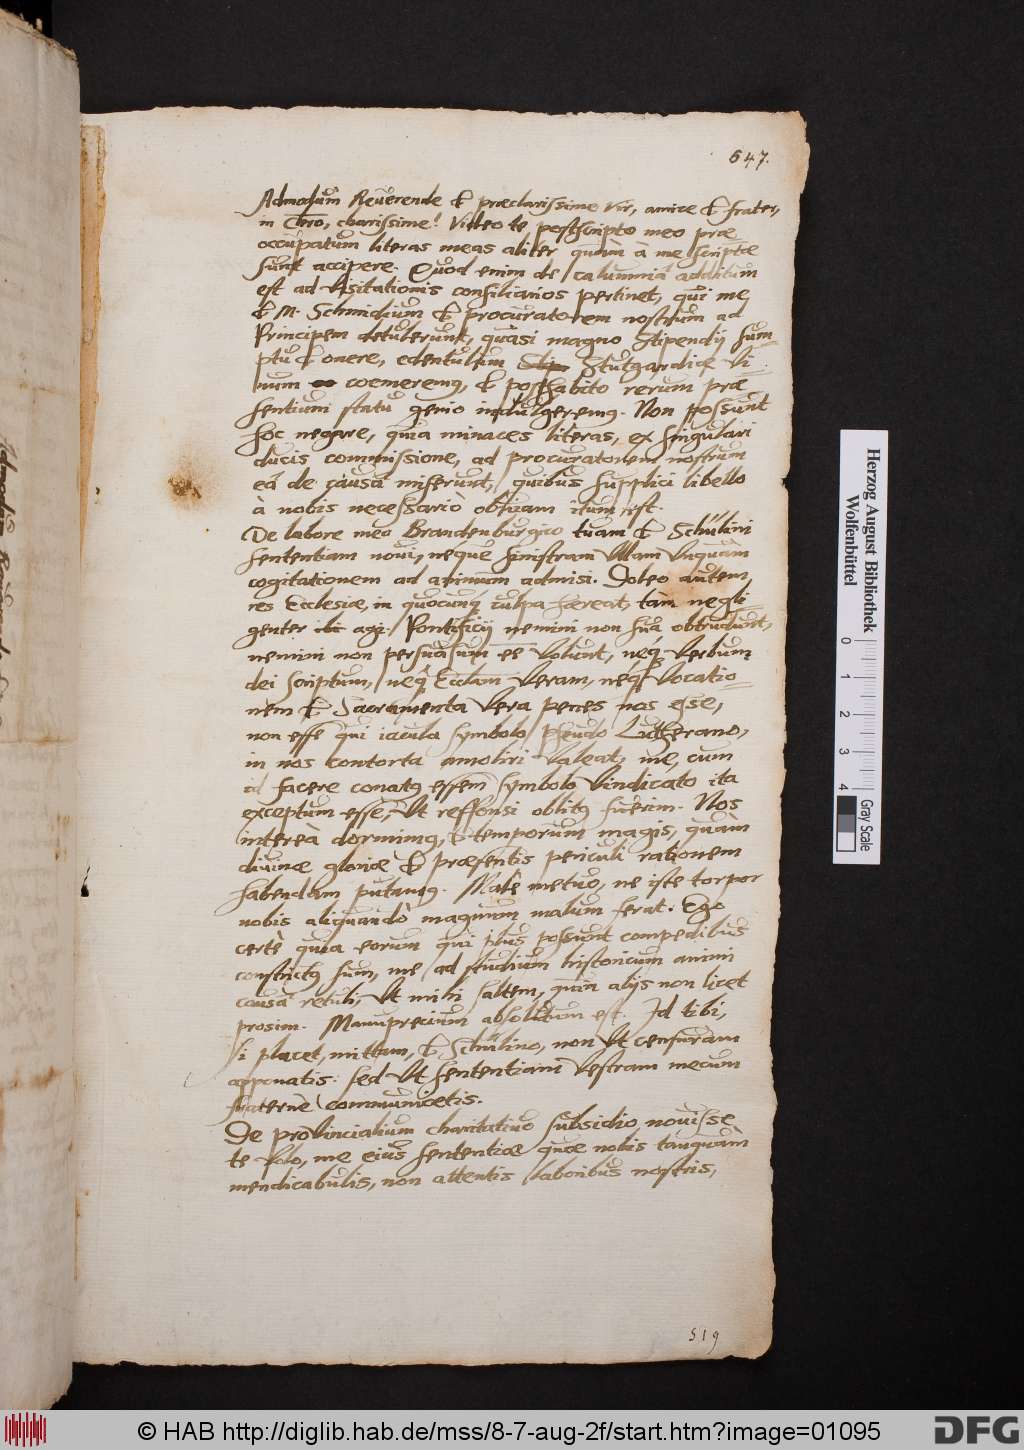 647.
Admodum Reuerende & præclarissime Vir, amice & frater,
in Chro, charissime! Video te postscripto meo præ
occupatum literas meas aliter quàm à me scriptæ
sunt accipere. Quod enim de calumnia additum
est ad Visitationis consiliarios pertinet, qui me
& M. Schmidium & procuratorem nostrum ad
Principem detulerunt, quasi magno Stipendij sum-
ptu & onere, edentulum Stutgardiæ Vi-
num coemeremq, & posthabito rerum præ
sentium statu genio indulgeremq. Non possunt
hoc negare, quia minaces literas, ex singulari
ducis commissione, ad procuratorem nostrum
eâ de causâ miserunt, quibus supplici libello
à nobis necessariò obuiam itum est.
De labore meo Brandenburgico tuam & Schulini
sententiam noui, neque sinistram Vllam Vnquàm
cogitationem ad animum admisi. Doleo autem,
res Ecclesiæ, in quocunq culpa hæreat, tàm negli-
genter agi. Pontificij nemini non sua obtrudunt,
nemini non persuasum eē Volunt, neq Verbum
dei scriptum, neq Eccłam Veram, neq Vocatio-
nem & Sacramenta Vera penes nos esse,
non esse qui iacula symbolo pseudo Lutherano,
in nos contorta amoliri Valeat, me, cum
id facere conatq essem symbolo Vindicato ita
exceptum esse, Vt responsi oblitq fuerim. Nos
intereà dormimq, & temporum magis, quàm
diuinæ gloriæ & præsentis periculi rationem
habendam putamq. Malè metuo, ne iste torpor
nobis aliquandò magnum malum ferat. Ego
certè quia eorum qui plus possunt compedibus
constrictq sum, me ad studium historicum animi
causâ retuli, Vt mihi saltem, quia alijs non licet
prosim. Manuprecium absolutum est. Id tibi,
si placet, mittam, & Schulino, non Vt censuram
apponatis: sed Vt sententiam Vestram mecum
fraternè communicetis.
De prouincialium charitatiuo subsidio, nouisse
te Volo, me eius sententiæ quæ nobis tanquàm
mendicabulis, non attentis laboribus nostris,
519
Herzog August Bibliothek
Wolfenbüttel
0 1 2 3 4
Gray Scale
© HAB http://diglib.hab.de/mss/8-7-aug-2f/start.htm?image=01095
DFG